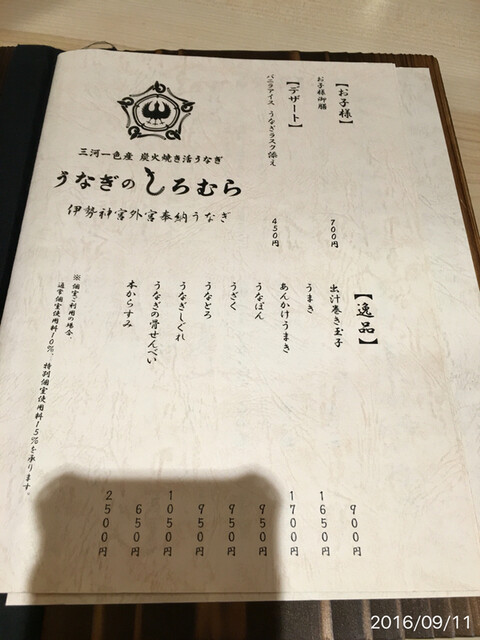 【お子様】
お子様御膳 700円
【デザート】
バニラアイス うなぎラスク添え 450円
三河一色産 炭火焼き活うなぎ
うなぎの しろむら
伊勢神宮外宮奉納うなぎ
【逸品】
出汁巻き玉子 900円
うまき 1650円
あんかけうまき 1700円
うなぽん 950円
うざく 950円
うなとろ 950円
うなぎしぐれ 1050円
うなぎの骨せんべい 650円
本からすみ 2500円
※ 個室ご利用の場合、
通常個室使用料10%、特別個室使用料15%を承ります。
2016/09/11